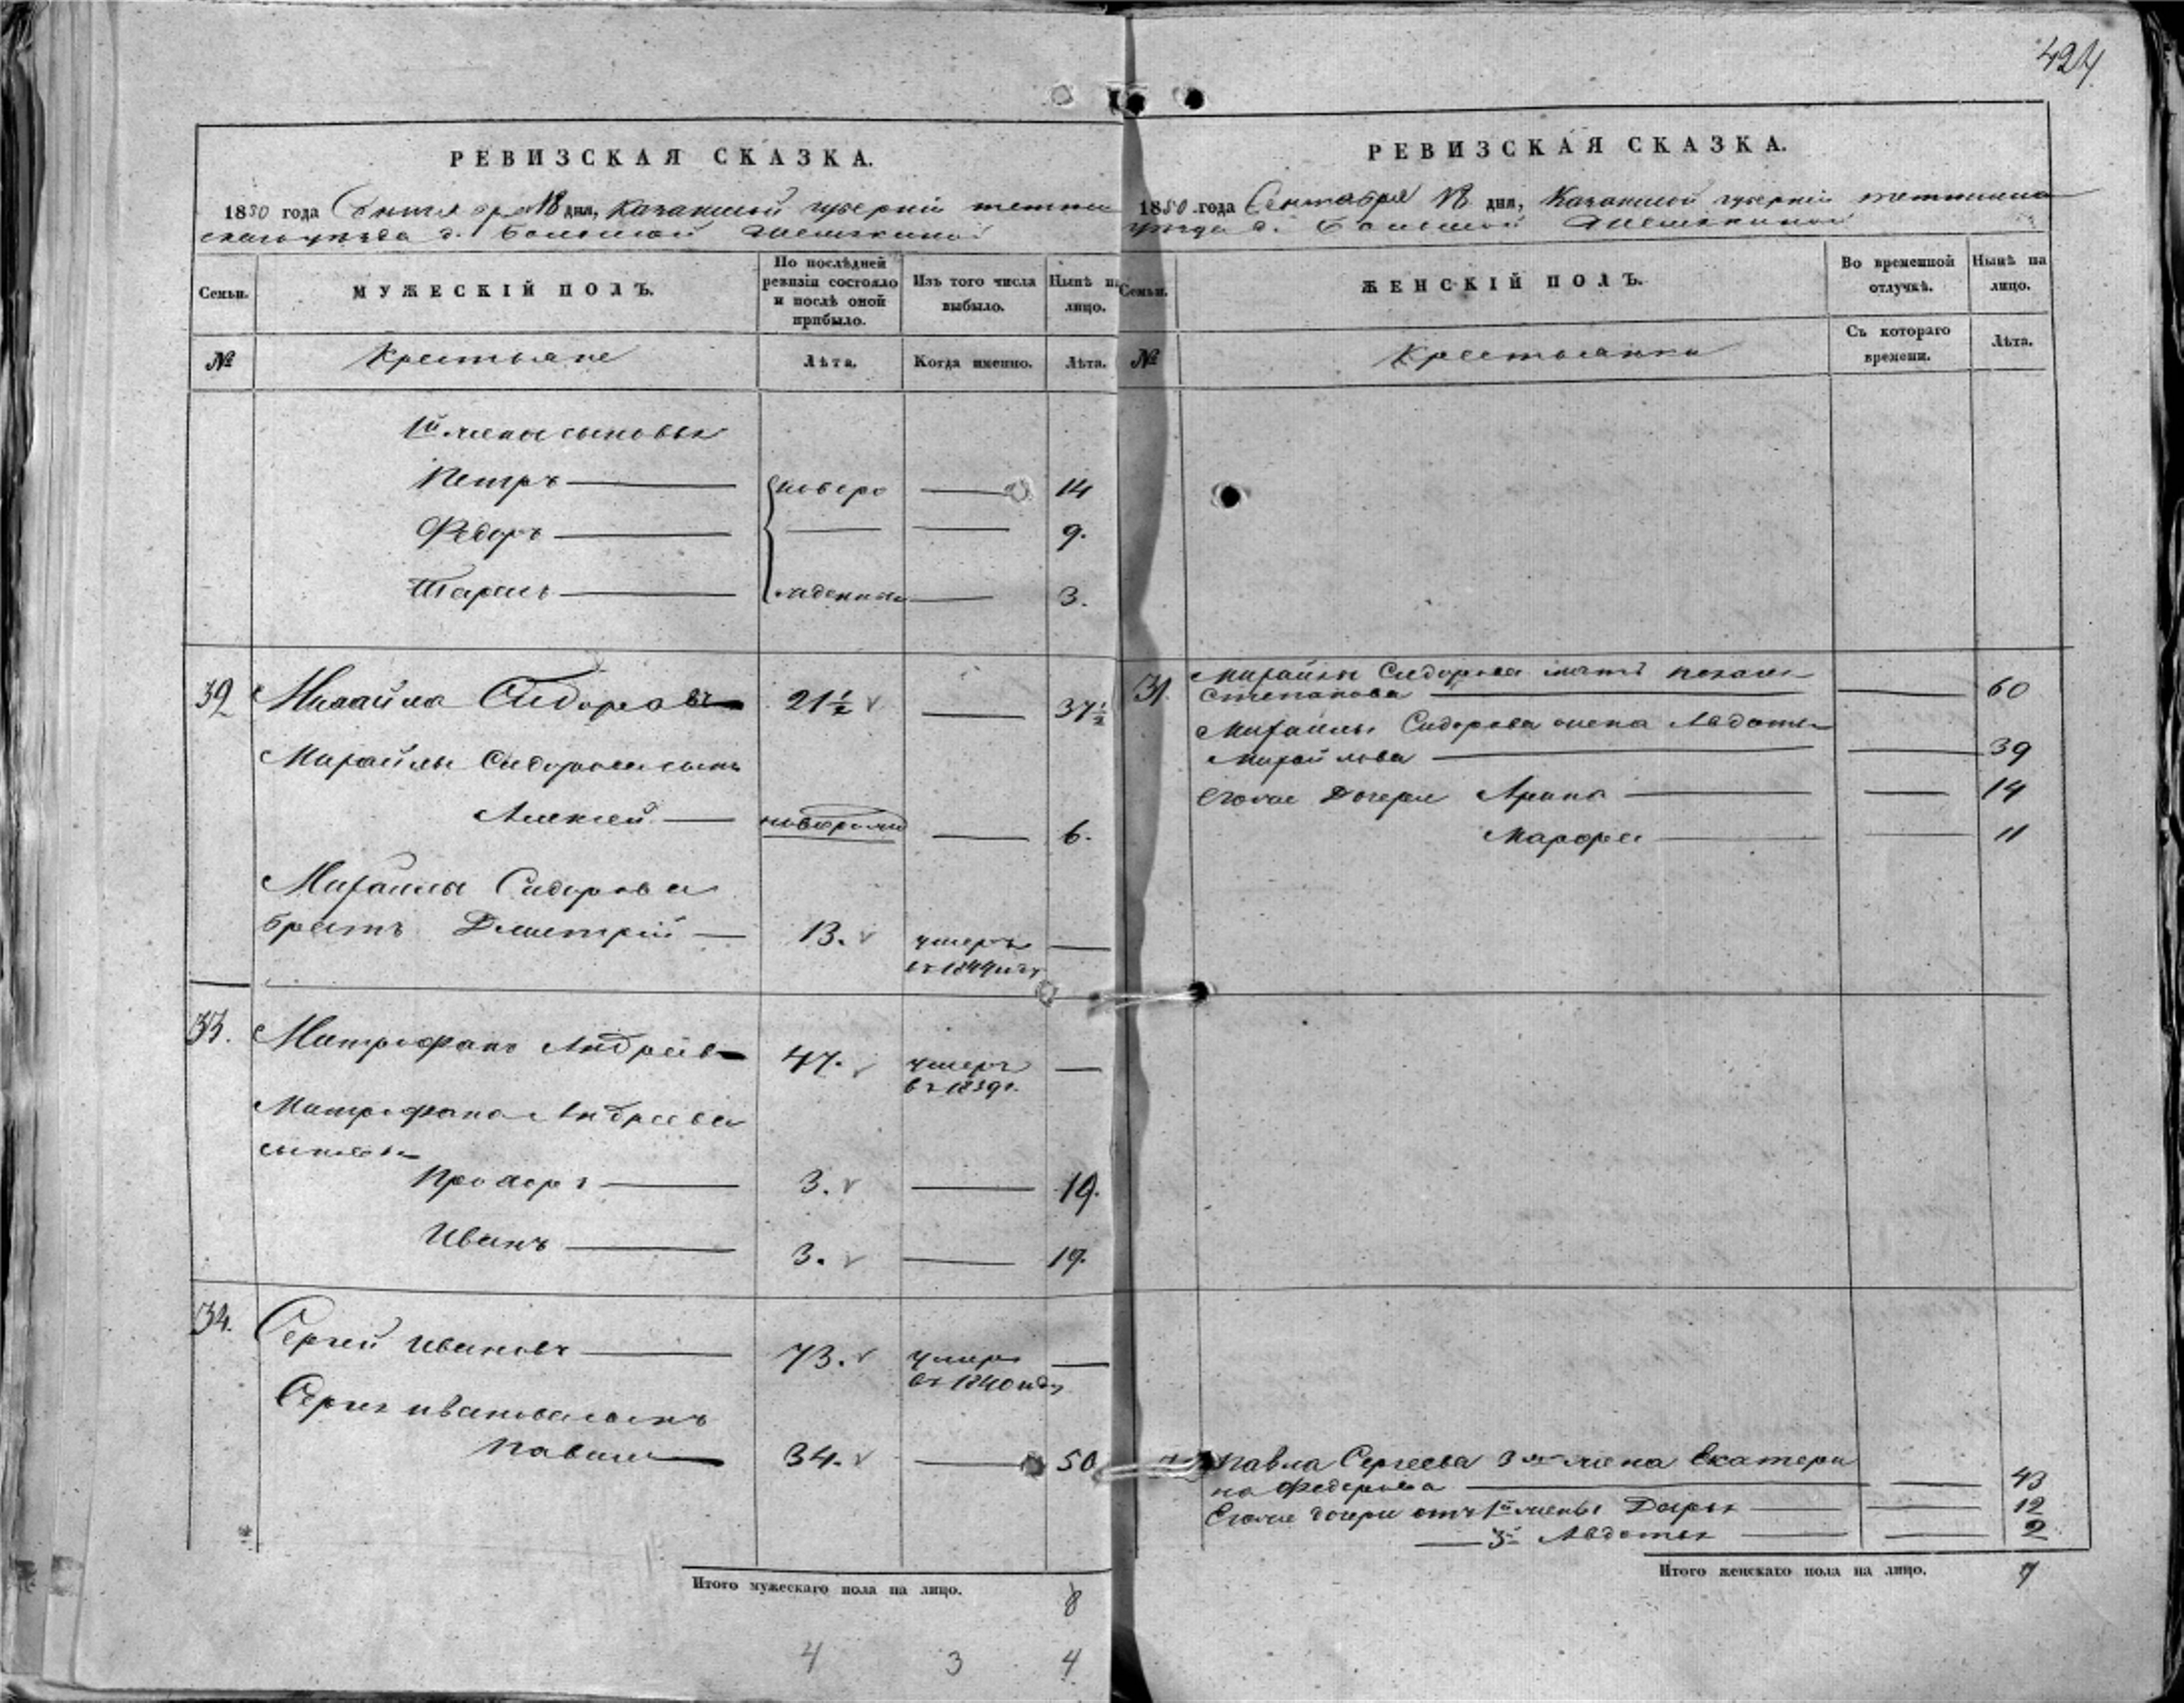 424
РЕВИЗСКАЯ СКАЗКА.
1850 года Сентября 18 дня, Казанской губернiи тетюш
скаго уѣзда д. Большой
Семьи.
МУЖЕСКIЙ ПОЛЪ.
По послѣдней ревизiи состояло и послѣ оной прибыло.
Изъ того числа выбыло.
Нынѣ на лицо.
№
Крестьяне
Лѣта.
Когда именно.
Лѣта.
1й жены сыновья
Петръ новоро 14
Федоръ 9.
Тарасъ жденные 3.
32 Михайла Сидоровъ 21½ 37½
Михайлы Сидорова сынъ
Алексей новорож 6.
Михайлы Сидорова
братъ Дмитрiй 13. умеръ
въ 1844 год
33. Митрофанъ Андреевъ 47. умеръ
въ 1839 г.
Митрофана Андреева
сыновья
Прохоръ 3. 19.
Иванъ 3. 19.
34. Сергей Ивановъ 73. умеръ
въ 1840 год
Сергея Иванова сынъ
Павелъ 34. 50
Итого мужескаго пола на лицо.
8
4 3 4
РЕВИЗСКАЯ СКАЗКА.
1850 года Сентября 18 дня, Казанской губернiи тетюшска
уѣзда д. Большой
Семьи.
ЖЕНСКIЙ ПОЛЪ.
Во временной отлучкѣ.
Нынѣ на лицо.
№
Крестьянки
Съ котораго времени.
Лѣта.
Михайлы Сидорова мать
Степанова 60
Михайлы Сидорова жена Авдотья
Михайлова 39
Еговые Дочери Арина 14
Марфа 11
Павла Сергеева 3я жена Екатери
на Федорова 43
Еговые дочери отъ 1й жены Дарья 12
3й Авдотья 2
Итого женскаго пола на лицо.
7